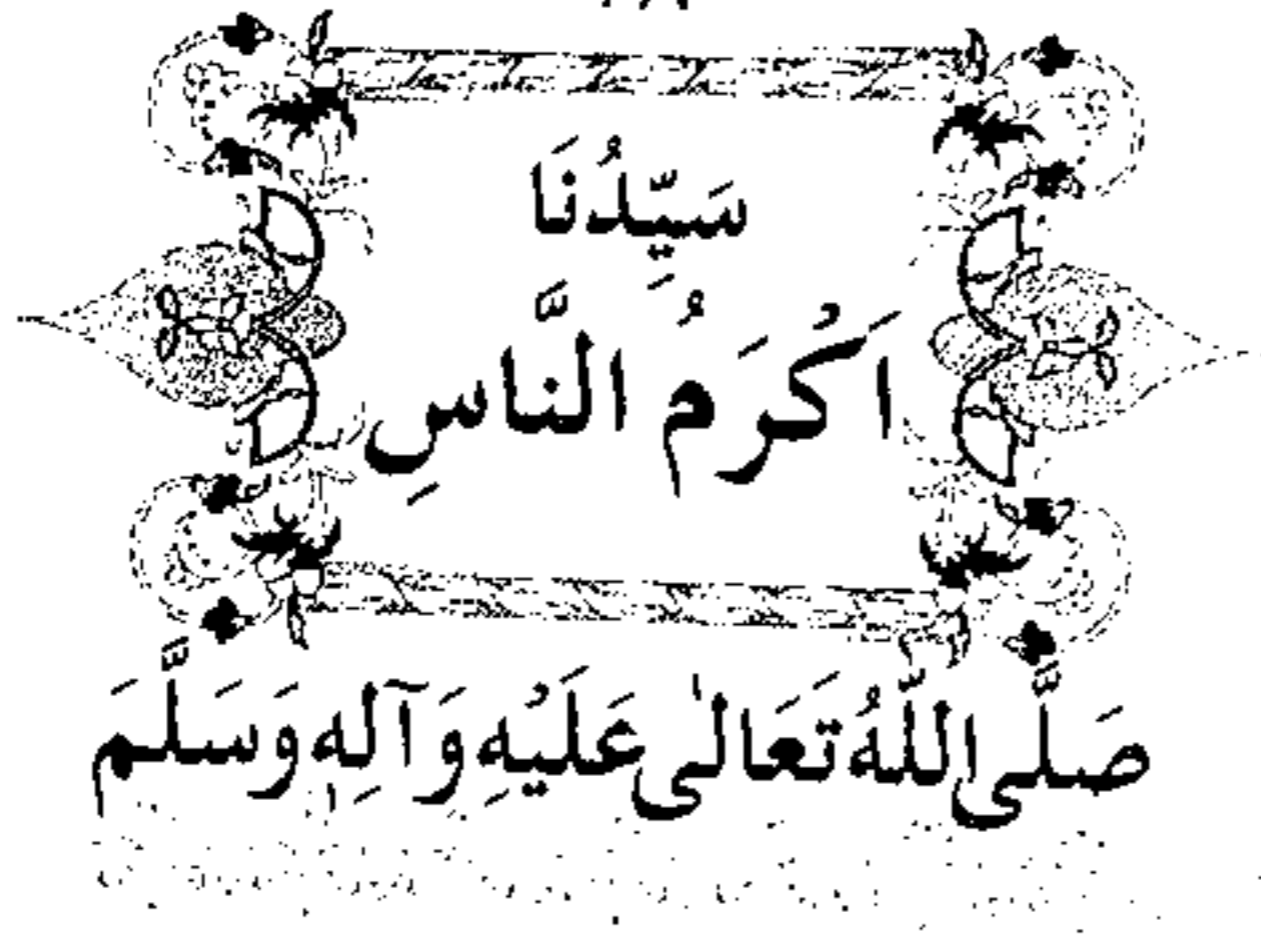 سَيِّدُنَا
اَكْرَمُ النَّاسِ
صَلَّى اللّٰهُ تَعَالٰى عَلَيْهِ وَآلِهٖ وَسَلَّمَ